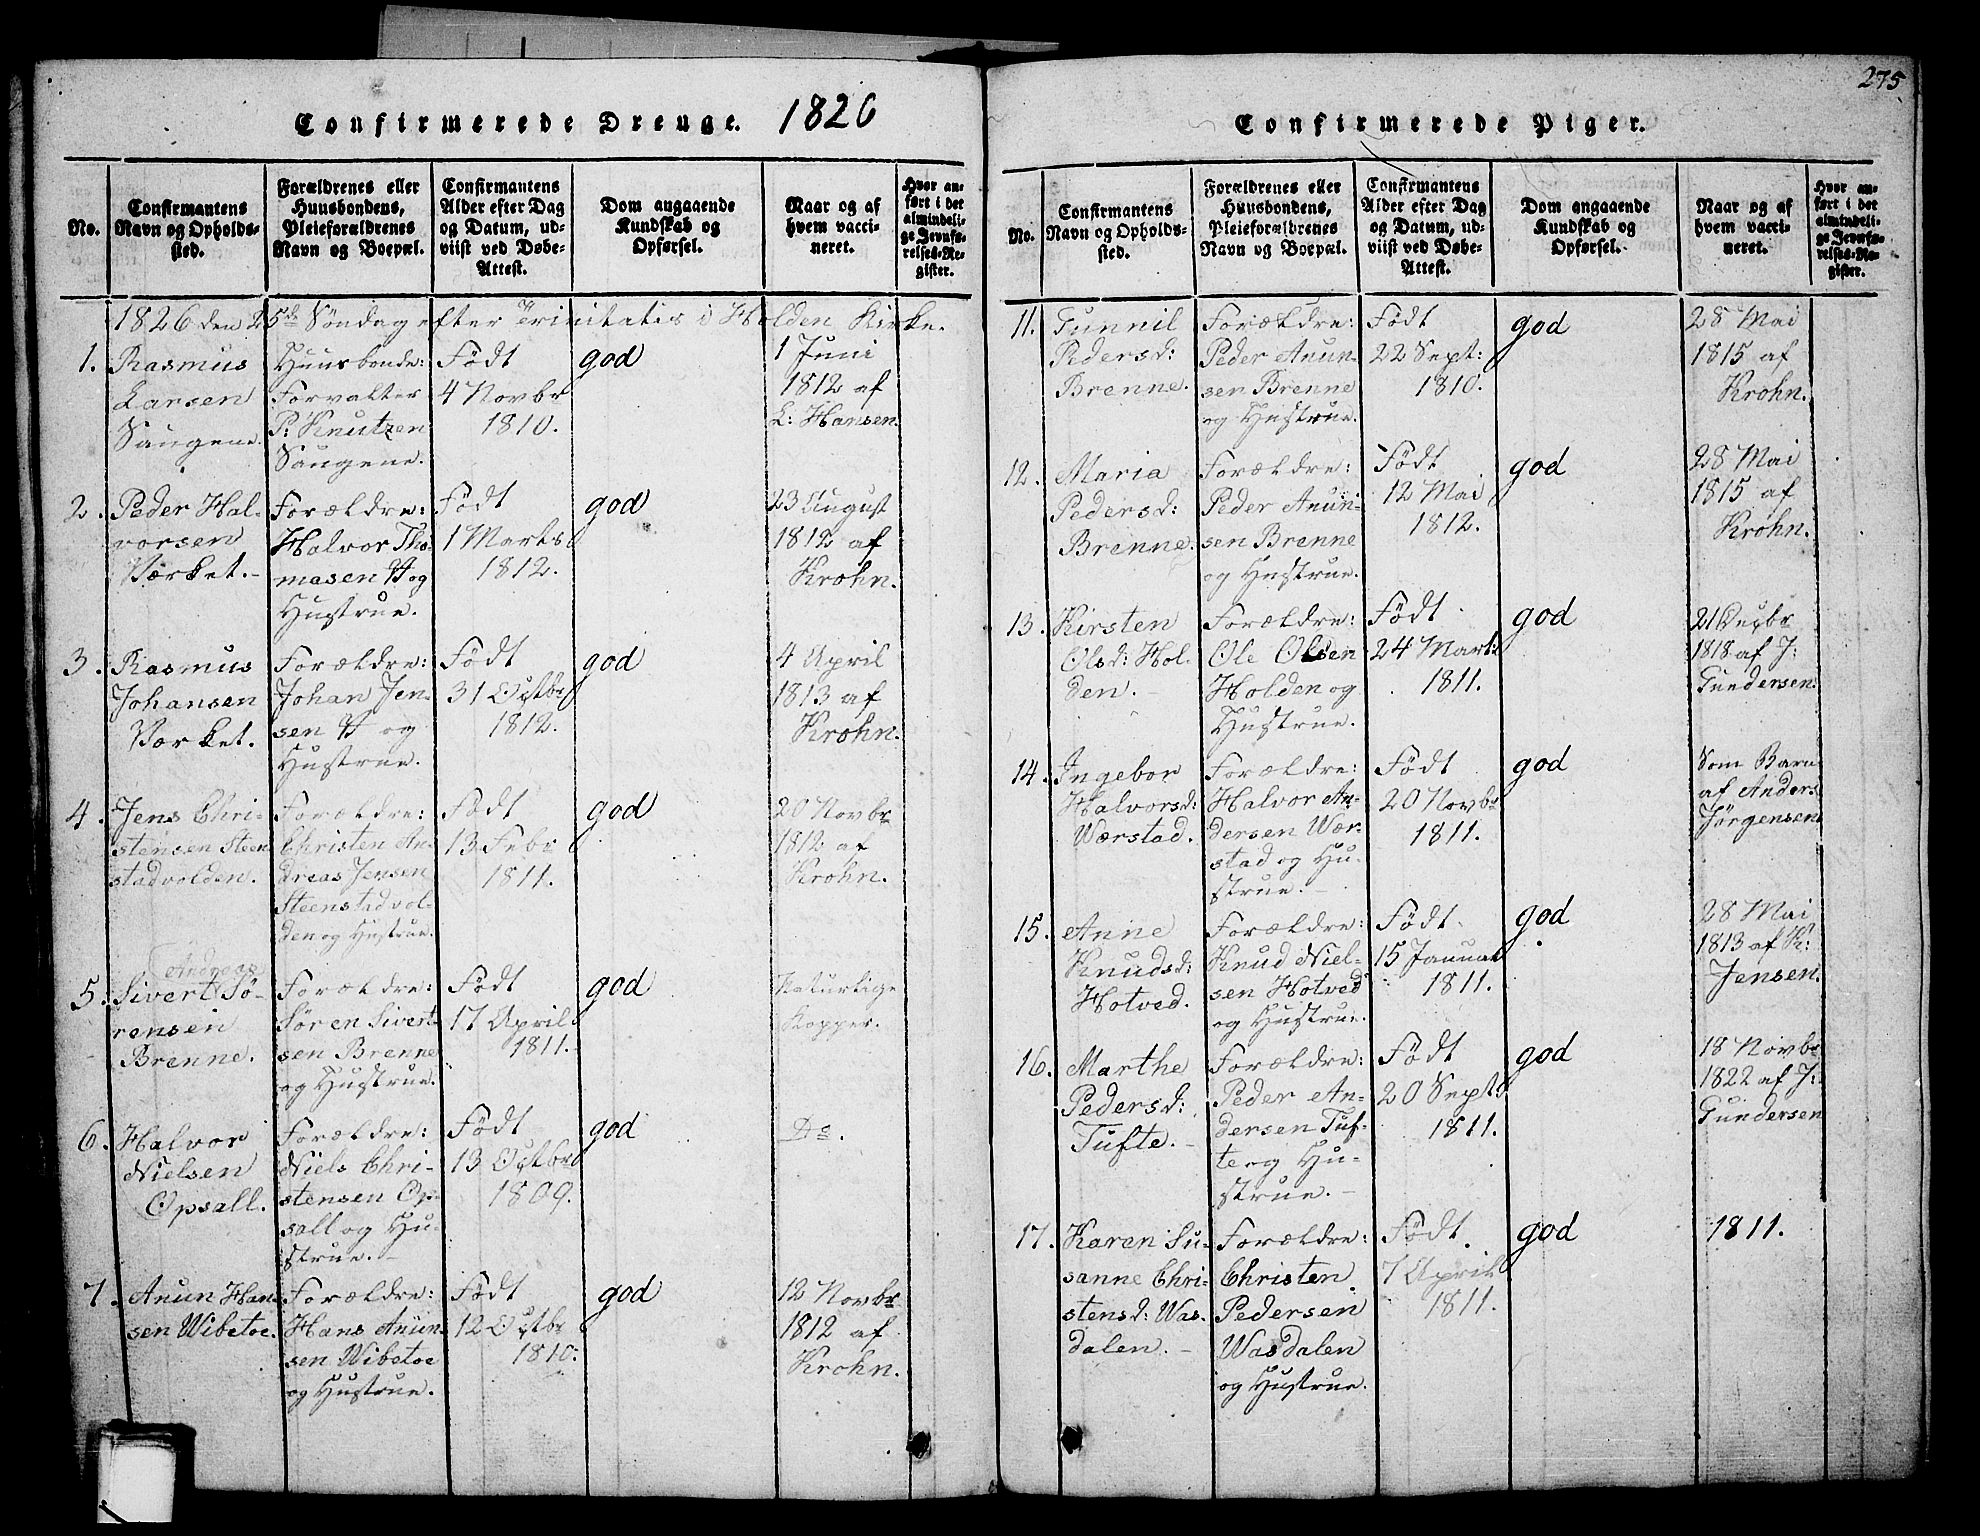 275
Confirmerede Drenge. 1826
No.
Confirmantens
Navn og Opholds-
sted.
Forældrenes eller
Huusbondens,
Pleieforældrenes
Navn og Boepæl.
Confirmantens
Alder efter Dag
og Datum, ud-
viist ved Døbe-
Attest.
Dom angaaende
Kundskab og
Opførsel.
Naar og af
hvem vacci-
neret.
Hvor an-
ført i det
almindeli-
ge Jevnfø-
relses-Re-
gister.
1826 den 25de Søndag efter Trinitatis i Holden Kirke.
1.
Rasmus
Larsen
Saugene.
Huusbonde:
Forvalter
P: Knutzen
Saugene.
Født
4 Novbr
1810.
god
1 Juni
1812 af
L: Hansen.
2.
Peder Hal-
vorsen
Værket.-
Forældre:
Halvor Tho-
masen V og
Hustrue.
Født
1 Marts
1812.
god
23 August
1812 af
Krohn.
3.
Rasmus
Johansen
Værket.
Forældre:
Johan Jen-
sen V og
Hustrue.
Født
31 Octbr
1812.
god
4 April
1813 af
Krohn.
4.
Jens Chri-
stensen Steen
stadvolden.
Forældre:
Christen An-
dreas Jensen
Steenstadvol-
den og Hustrue.
Født
13 Febr
1811.
god
20 Novbr
1812 af
Krohn.
5.
Andreas
Sivert Sø-
rensen
Brenne.
Forældre:
Søren Sivert-
sen Brenne
og Hustrue.
Født
17 April
1811.
god
Naturlige
Kopper.
6.
Halvor
Nielsen
Opsall.
Forældre:
Niels Chri-
stensen Op-
sall og Hu-
strue.-
Født
13 Octbr
1809.
god
Do.
7.
Anun Han-
sen Wibetoe.
Forældre:
Hans Anun-
sen Wibetoe
og Hustrue.
Født
12 Octbr
1810:
god
12 Novbr
1812 af
Krohn.
Confirmerede Piger.
No.
Confirmantens
Navn og Opholds-
sted.
Forældrenes eller
Huusbondens,
Pleieforældrenes
Navn og Boepæl.
Confirmantens
Alder efter Dag
og Datum, ud-
viist ved Døbe-
Attest.
Dom angaaende
Kundskab og
Opførsel.
Naar og af
hvem vacci-
neret.
Hvor an-
ført i det
almindeli-
ge Jevnfø-
relses-Re-
gister.
11.
Gunnil
Pedersd:
Brenne.
Forældre:
Peder Anun-
sen Brenne
og Hustrue.
Født
22 Sept:
1810.
god
28 Mai
1815 af
Krohn.
12.
Maria
Pedersd:
Brenne.
Forældre:
Peder Anun-
sen Brenne
og Hustrue.
Født
12 Mai
1812.
god
28 Mai
1815 af
Krohn.
13.
Kirsten
Olsd: Hol-
den.
Forældre:
Ole Olsen
Holden og
Hustrue.
Født
24 Marts
1811.
god
21 Decbr
1818 af J:
Gundersen.
14.
Ingebor
Halvorsd:
Wærstad.
Forældre:
Halvor An-
dersen Wær-
stad og Hu-
strue.-
Født
20 Novbr
1811.
god
Som Barn
af Anders
Jørgensen
15.
Anne
Knudsd:
Hotved.
Forældre:
Knud Niel-
sen Hotved
og Hustrue.
Født
15 Januar
1811.
god
28 Mai
1813 af K:
Jensen.
16.
Marthe
Pedersd:
Tufte.-
Forældre:
Peder An-
dersen Tuf-
te og Hu-
strue.-
Født
20 Sept:
1811.
god
18 Novbr
1822 af J:
Gundersen
17.
Karen Su-
sanne Chri-
stensd: Was-
dalen.-
Forældre:
Christen
Pedersen
Wasdalen
og Hustrue.
Født
7 April
1811.
god
1811.